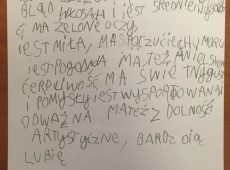 BLĄD WŁOSAH I JEST ŚREDNIEJ WYSOKOŚ
CI MA ZELONE OCZY
JEST MIŁA, MA POCZUCIE CHUMORU
JEST POGODNA MA TEŻ ANIELSKĄ
CERPLIWOŚĆ MA ŚWIETNE
I POMYSŁY JEST WYSPORTOWANA
ODWAŻNA MA TEŻ ZDOLNOŚĆ
ARTYSTYCZNE, BARDZO JĄ
LUBIĘ